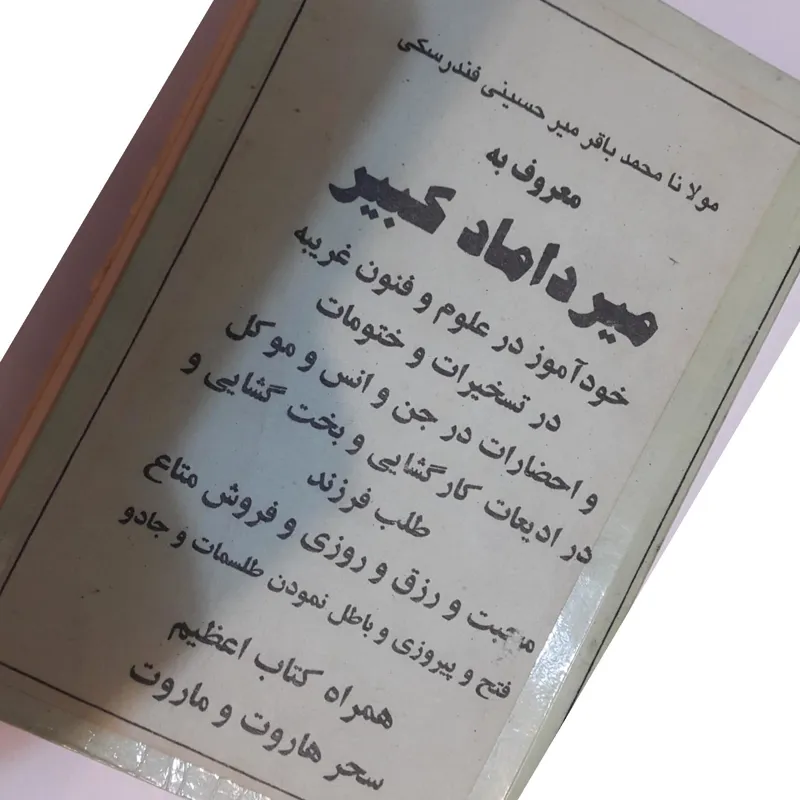 مولانا محمد باقر میر حسینی فندرسکی
معروف به
میرداماد کبیر
خودآموز در علوم و فنون غریبه
در تسخیرات و ختومات
و احضارات در جن و انس و موکل
در ادیعات کارگشایی و بخت گشایی و
طلب فرزند
محبت و رزق و روزی و فروش متاع
فتح و پیروزی و باطل نمودن طلسمات و جادو
همراه کتاب اعظیم
سحر هاروت و ماروت